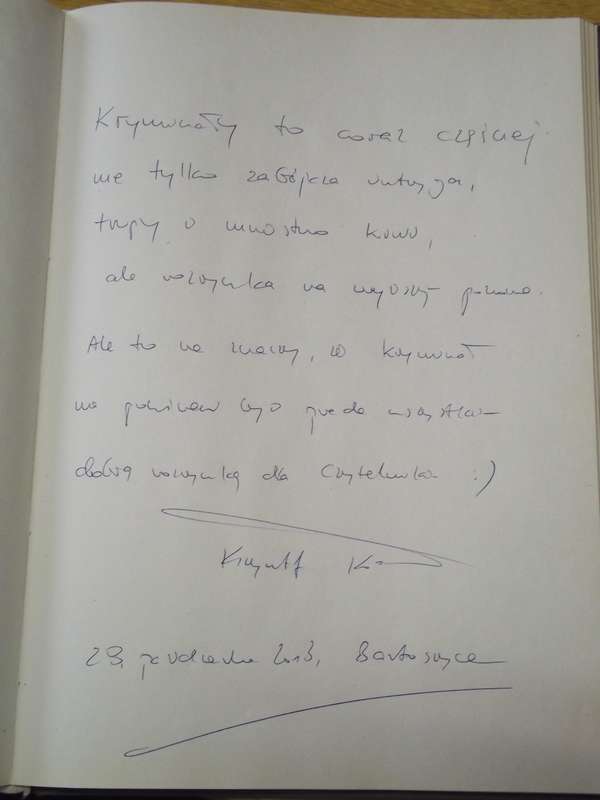 Kryminały to coraz częściej
nie tylko zabójcza intryga,
trupy i mnóstwo krwi,
ale rozrywka na wyższym poziomie.
Ale to nie znaczy, że kryminał
nie powinien być przede wszystkim
dobrą rozrywką dla Czytelnika :)
Krzysztof
29 października 2013, Bartoszyce